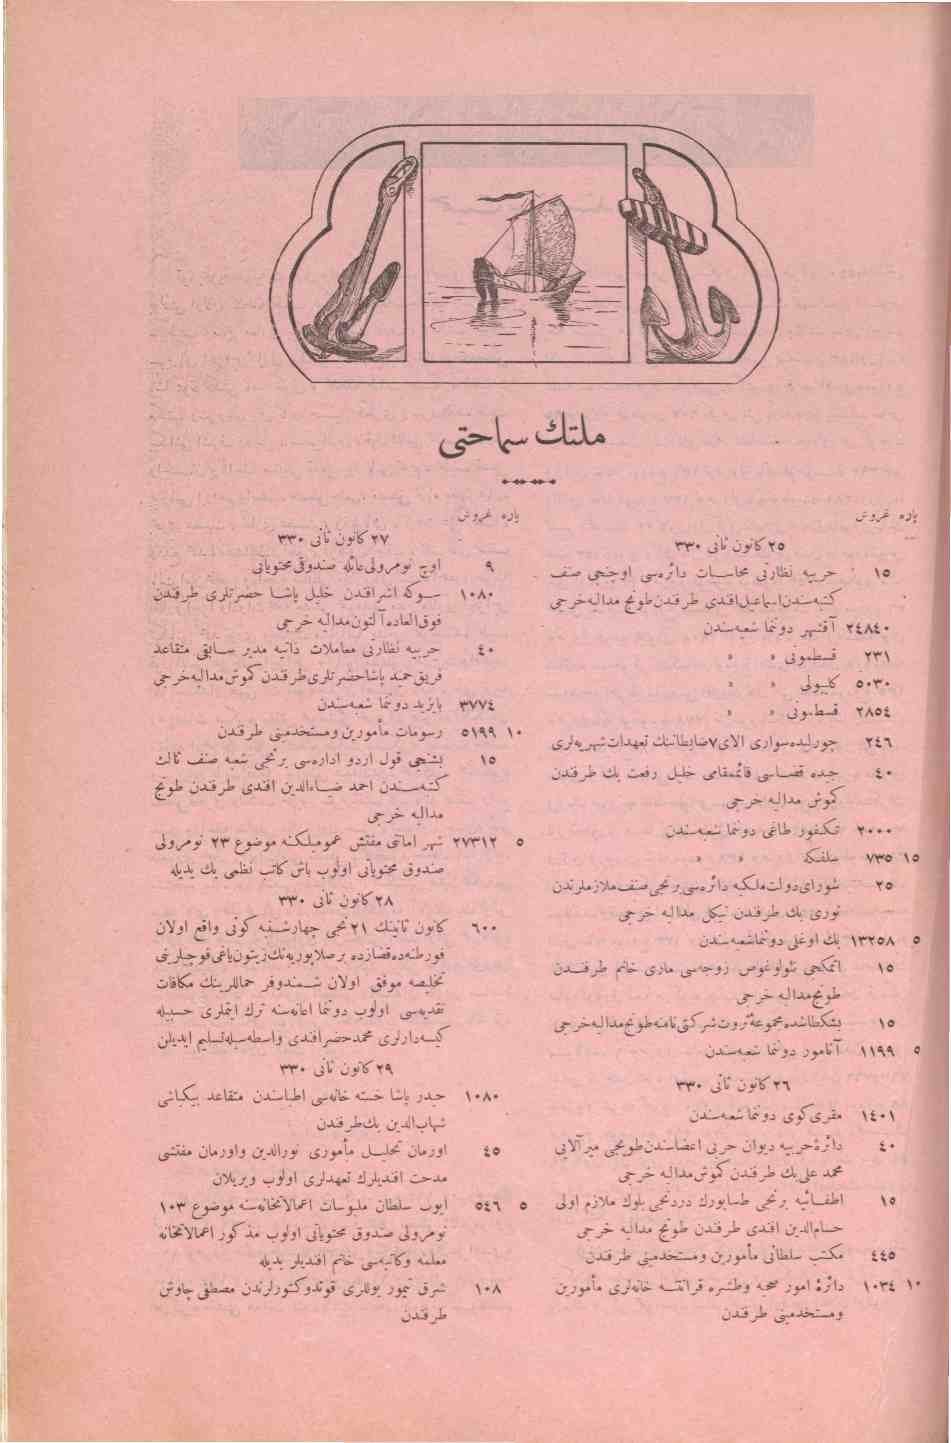 ملتك سماحتی
پاره غروش
٢٥ كانون ثانی ٣٣٠
١٥ حربیه نظارتی محاسبات دائره‌سی اوچنجی صنف
كتبه‌سندن اسماعیل افندی طرفندن طونج مدالیه خرجی
٢٤٨٤٠ آقشهر دوننما شعبه‌سندن
٢٣١ قسطمونی » »
٥٠٣٠ كلیبولی » »
٢٨٥٤ قسطمونی » »
٢٤٦ چورلیده سواری الای ٧ ضابطاننك تعهدات شهریه‌لری
٤٠ جیده قضاسی قائممقامی خلیل رفعت بك طرفندن
كموش مدالیه خرجی
٢٠٠٠ تكفور طاغی دوننما شعبه‌سندن
١٥ ٧٣٥ سلفكه » »
٢٥ شورای دولت ملكیه دائره‌سی برنجی صنف ملازملرندن
نوری بك طرفندن نیكل مدالیه خرجی
٥ ١٣٢٥٨ بك اوغلی دوننما شعبه‌سندن
١٥ اتمكجی نئولوغوص زوجه‌سی ماری خانم طرفندن
طونج مدالیه خرجی
١٥ بشكطاشده مجموعهٔ ثروت شركتی نامنه طونج مدالیه خرجی
٥ ١١٩٩ آنامور دوننما شعبه‌سندن
٢٦ كانون ثانی ٣٣٠
١٤٠١ مقری كوی دوننما شعبه‌سندن
٤٠ دائرهٔ حربیه دیوان حربی اعضاسندن طوپجی میرآلایی
محمد علی بك طرفندن كموش مدالیه خرجی
١٥ اطفائیه برنجی طابورك دردنجی بلوك ملازم اولی
حسام‌الدین افندی طرفندن طونج مدالیه خرجی
٤٤٥ مكتب سلطانی مأمورین ومستخدمینی طرفندن
١٠ ١٠٣٤ دائرهٔ امور صحیه وطشره قرانتینه خانه‌لری مأمورین
ومستخدمینی طرفندن
پاره غروش
٢٧ كانون ثانی ٣٣٠
٩ اوچ نومرولی عائله صندوقی محتویاتی
١٠٨٠ سوكه اشرافندن خلیل پاشا حضرتلری طرفندن
فوق‌العاده آلتون مدالیه خرجی
٤٠ حربیه نظارتی معاملات ذاتیه مدیر سابقی متقاعد
فریق حمید پاشا حضرتلری طرفندن كموش مدالیه خرجی
٣٧٧٤ بایزید دوننما شعبه‌سندن
١٠ ٥١٩٩ رسومات مأمورین ومستخدمینی طرفندن
١٥ بشنجی قول اردو اداره‌سی برنجی شعبه صنف ثالث
كتبه‌سندن احمد ضیاءالدین افندی طرفندن طونج
مدالیه خرجی
٥ ٢٧٣١٢ شهر امانتی مفتش عمومیلكنه موضوع ٢٣ نومرولی
صندوق محتویاتی اولوب باش كاتب نظمی بك یدیله
٢٨ كانون ثانی ٣٣٠
٦٠٠ كانون ثانینك ٢١ نجی چهارشنبه كونی واقع اولان
فورطنه‌ده قضازده بر صلاپوریه‌نك زیتون یاغی فوچیلرینی
تخلیصه موفق اولان شمندوفر حماللرینك مكافات
نقدیه‌سی اولوب دوننما اعانه‌سنه ترك ایتملری حسبیله
كیسه‌دارلری محمد خضر افندی واسطه‌سیله تسلیم ایدیلن
٢٩ كانون ثانی ٣٣٠
١٠٨٠ حیدر پاشا خسته خانه‌سی اطباسندن متقاعد بیكباشی
شهاب‌الدین بك طرفندن
٤٥ اورمان تحلیل مأموری نورالدین واورمان مفتشی
مدحت افندیلرك تعهدلری اولوب ویریلان
٥ ٥٤٦ ایوب سلطان ملبوسات اعمالاتخانه‌سنه موضوع ١٠٣
نومرولی صندوق محتویاتی اولوب مذكور اعمالاتخانه
معلمه وكاتبه‌سی خانم افندیلر یدیله
١٠٨ شرق تیمور یوللری قوندوكتورلرندن مصطفی چاوش
طرفندن